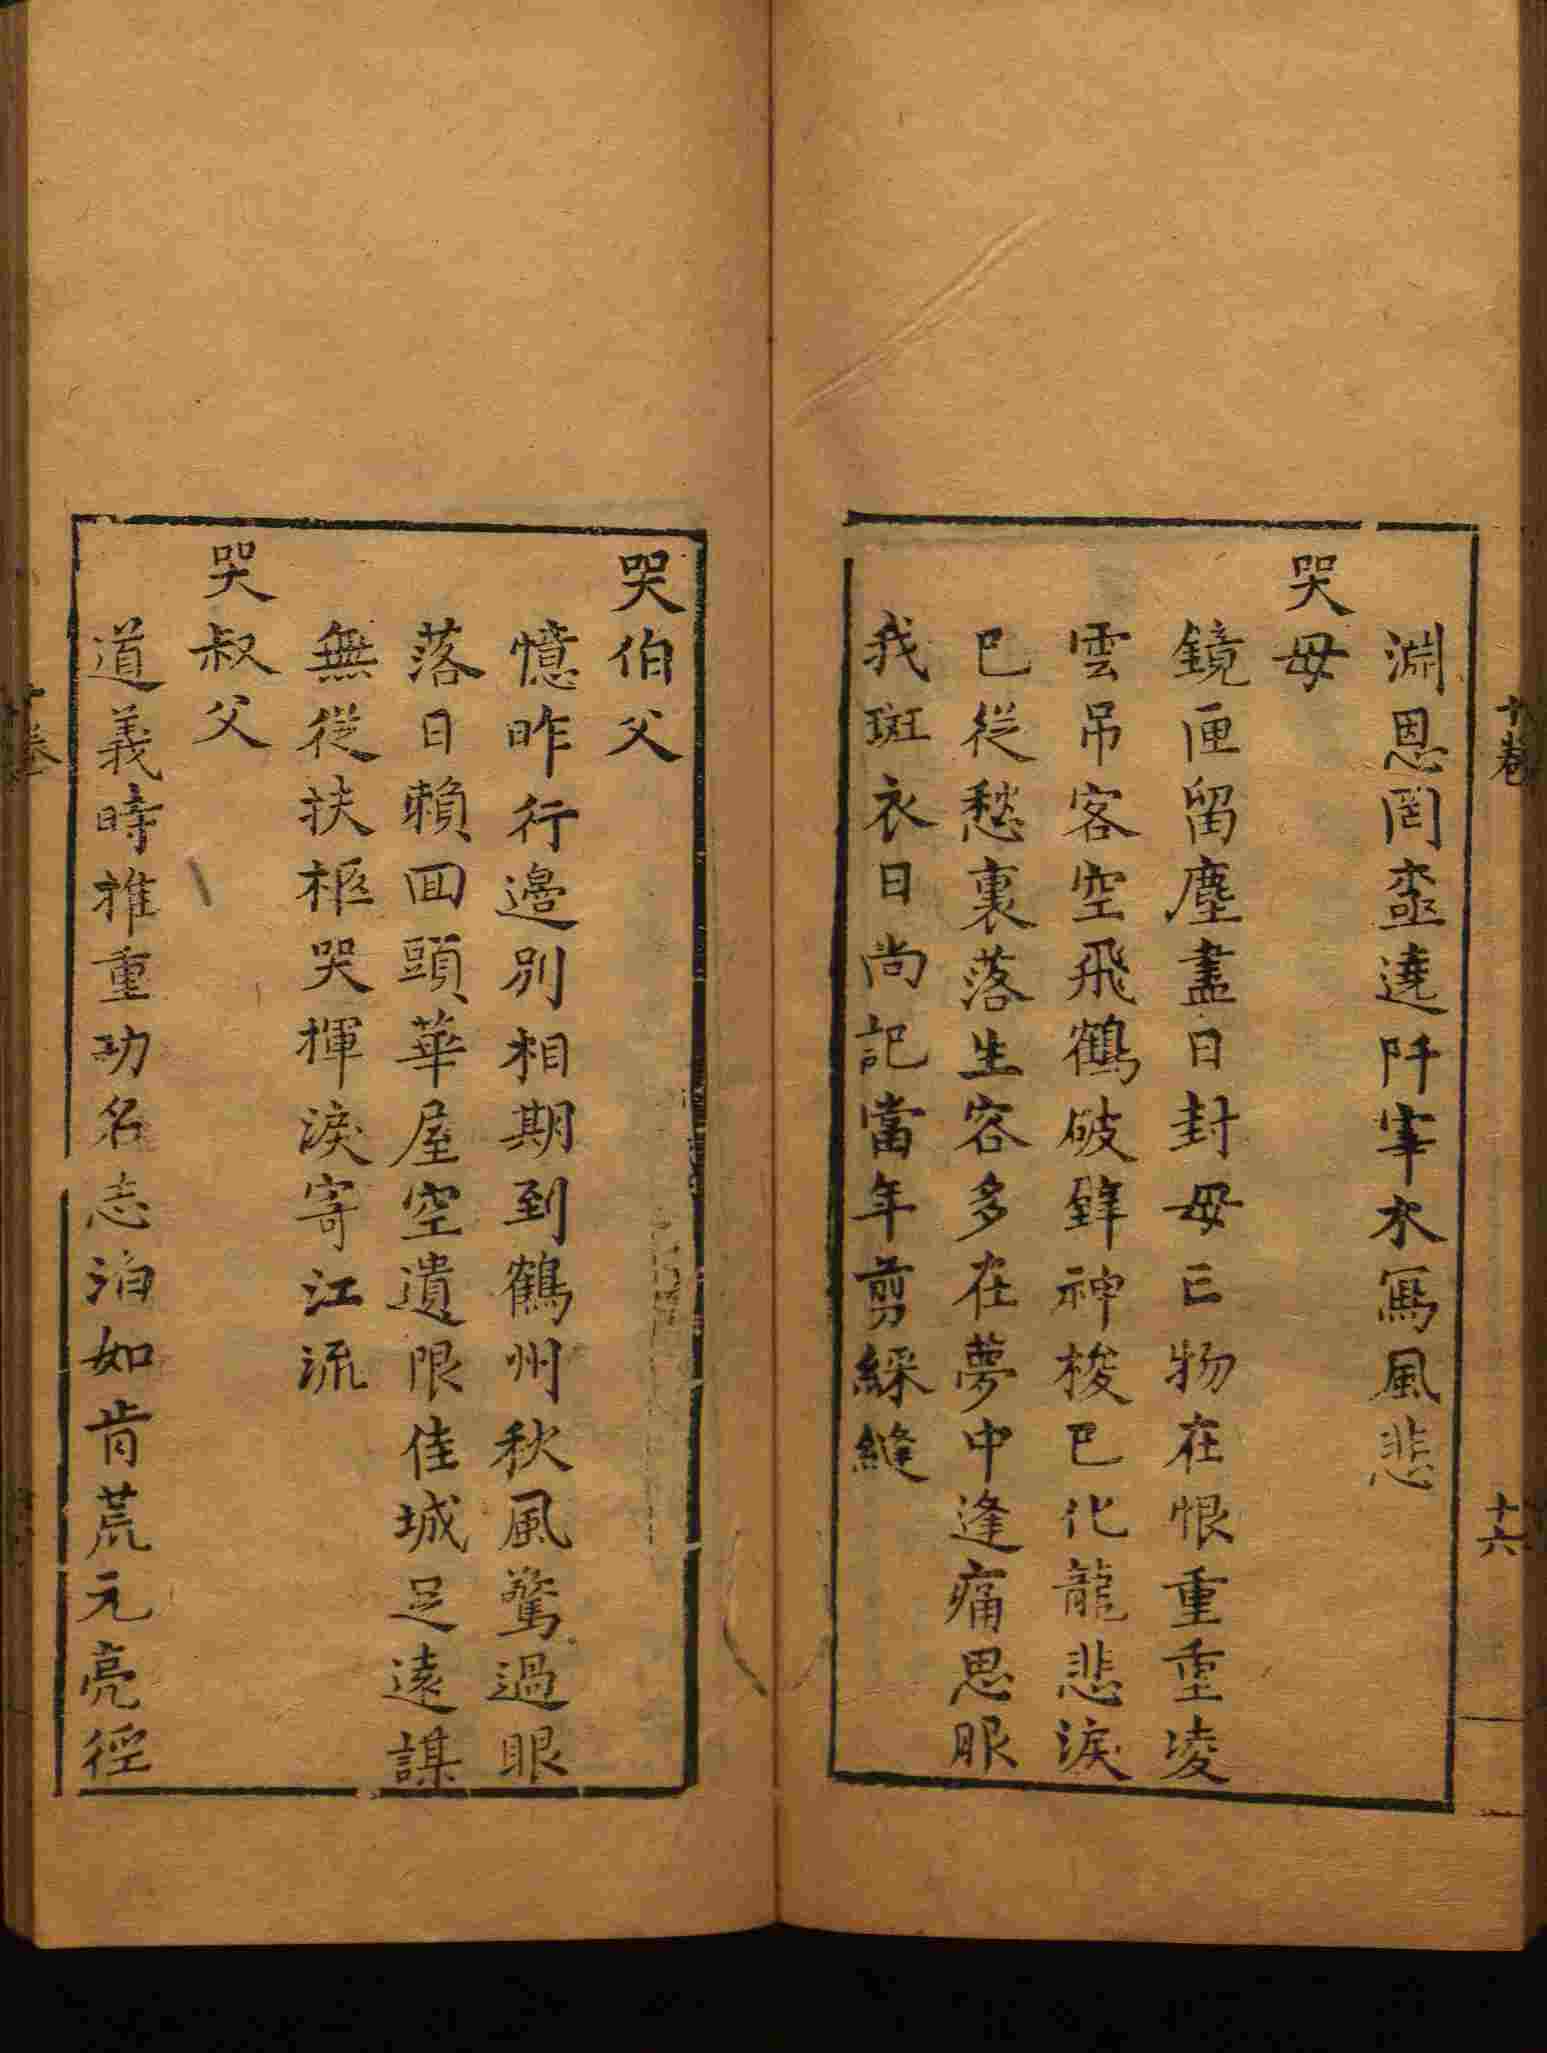 淵恩罔盡遶阡宰木寫風悲
哭母
鏡匣留塵盡日封母亡物在恨重重凌
雲吊客空飛鶴破鋒神梭已化龍悲淚
已從愁裏落生容多在夢中逢痛思眼
我斑衣日尚記當年剪綵縫
十卷
十六
哭伯父
憶昨行邊別相期到鶴州秋風驚過眼
落日賴回頭華屋空遺限佳城足遠謀
無從扶柩哭揮淚寄江流
哭叔父
道義時推重功名志泊如肯荒元亮徑